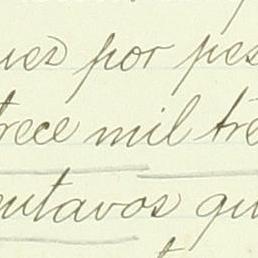 uez por pes
trece mil tre
entavos qu